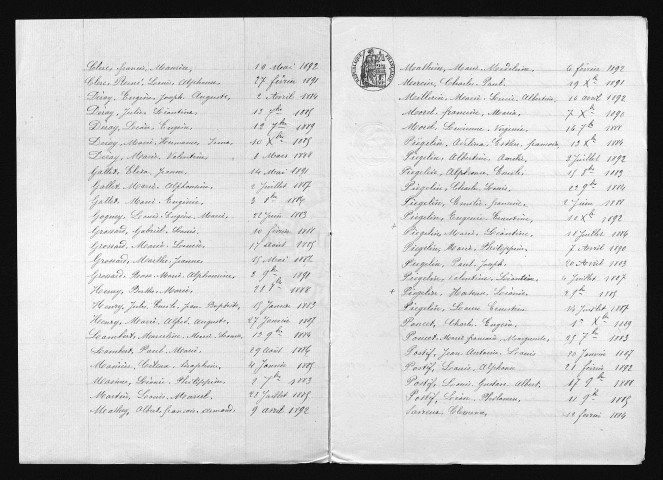 Clerc, francis, Maurice, 10 Mai 1892
Clerc, René, Louis, Alphonse 27 février 1891
Déray, Eugène, Joseph, Auguste, 2 Avril 1884
Déray, Julie, Léontine 13 7bre 1885
Déray, Léon, Eugène 12 7bre 1889
Déray, Marie, Hermance, Irma 10 Xbre 1885
Déray, Marie, Valentine, 1 Mars 1888
Gallet, Elisa, Jeanne 14 Mai 1891
Gallet, Marie, Alphonsine, 2 Juillet 1887
Gallet, Marie, Eugénie, 3 8bre 1884
Gogney, Louis, Eugène, Marie, 22 Juin 1883
Grosard, Gabriel, Louis 10 février 1888
Grosard, Marie, Léonie, 17 Août 1885
Grosard, Marthe, Jeanne, 15 Mai 1888
Grosard, Rose, Marie, Alphonsine, 3 9bre 1891
Henry, Berthe, Marie, 21 8bre 1888
Henry, Jules, Emile, Jean Baptiste, 15 Janvier 1883
Henry, Marie, Alfred, Auguste, 27 Janvier 1885
Lambert, Marceline, Marie, 13 9bre 1884
Lambert, Paul, Marie, 29 Août 1886
Mairie, Célina, Joséphine, 4 Janvier 1885
Marion, Léonie, Philippine, 2 7bre 1883
Martin, Louis, Marcel, 21 Juillet 1885
Mathey, Albert, francois, Armand 9 Avril 1892
Mathieu, Marie, Madeleine, 6 février 1892
Mercier, Charles, Paul, 19 Xbre 1891
Meilleur, Marie, Louise, Albertine, 16 Avril 1892
Morel, francine, Maria, 7 Xbre 1890
Morel, Virginie, 16 7bre 1888
Piégelin, Esther, francine, 13 Xbre 1884
Piégelin, Albertine, Amélie, 3 Juillet 1892
Piégelin, Alphonse, Emile, 15 8bre 1883
Piégelin, Charles, Louis, 22 9bre 1884
Piégelin, Emilie, francine, 2 Juin 1888
Piégelin, Eugénie, Ernestine, 11 Xbre 1892
+ Piégelin, Marie, Léontine, 11 Juillet 1884
Piégelin, Marie, Philippine, 7 Avril 1890
Piégelin, Paul, Joseph, 20 Avril 1883
Piégelin, Valentine, Léontine, 6 Juillet 1887
+ Piégelin, Léonie, 1885
Piégelin, Léonie, Ernestine, 14 Juillet 1887
Poncet, Charles, Eugène, 1er Xbre 1889
Poncet, Marie, francoise, Marguerite, 25 7bre 1883
Postif, Jean, Antoine, Louis 10 Janvier 1887
Postif, Louis, Alphonse 21 février 1892
Postif, Louis, Gustave, Albert, 17 9bre 1888
Postif, Léon, Philomen, 11 9bre 1885
Clémence, 12 février 1884